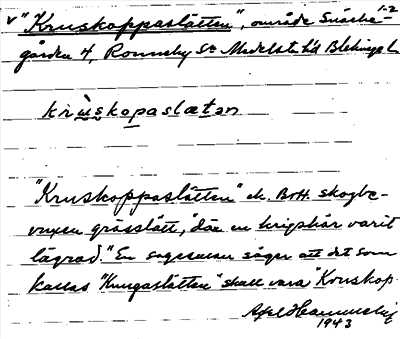 v "Kruskoppaslätten", område Snärje- 1-2
gården 4, Ronneby Sn Medelsta hd Blekinge L
krùskopaslætən
"Kruskoppaslätten" ek. Bott. skogbe-
vuxen grässlätt, "där en krigshär varit
lägrad." En sagesman säger att det som
kallas "Kungaslätten" skall vara "Kruskop-
1943